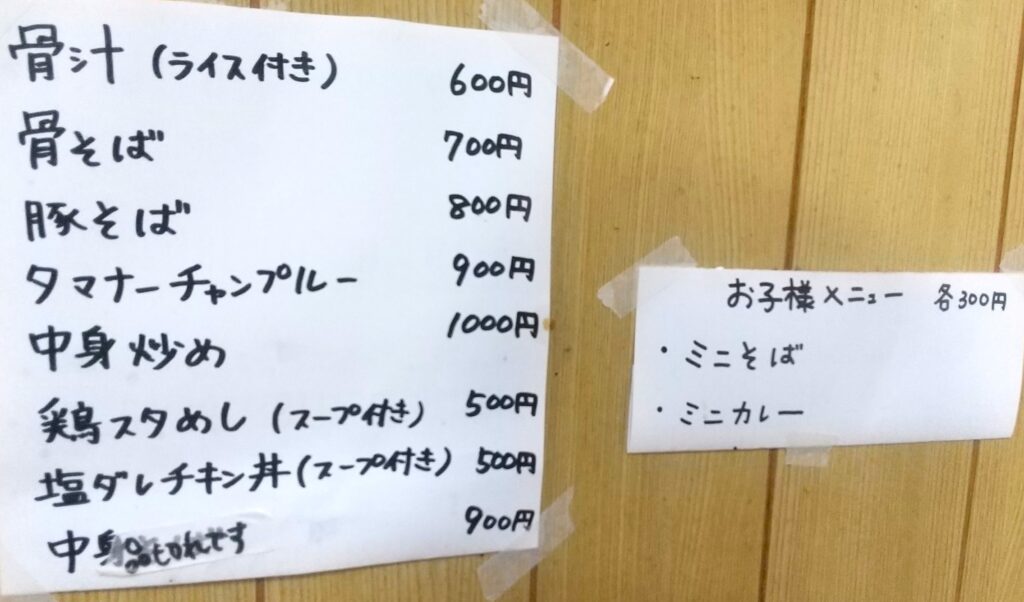 骨汁(ライス付き) 600円
骨そば 700円
豚そば 800円
タマナーチャンプルー 900円
中身炒め 1000円
鶏スタめし(スープ付き) 500円
塩ダレチキン丼(スープ付き) 500円
中身 品切れです 900円
お子様メニュー 各300円
・ミニそば
・ミニカレー